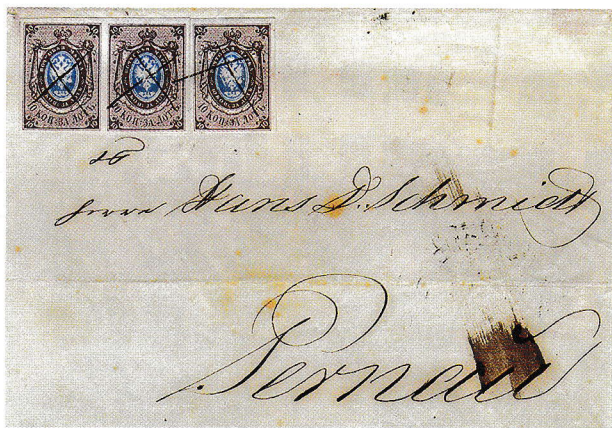 10 КОП. ЗА ЛОТЪ. 10 КОП. ЗА ЛОТЪ. 10 КОП. ЗА ЛОТЪ.
Herrn Hans D. Schmidt
Pernau